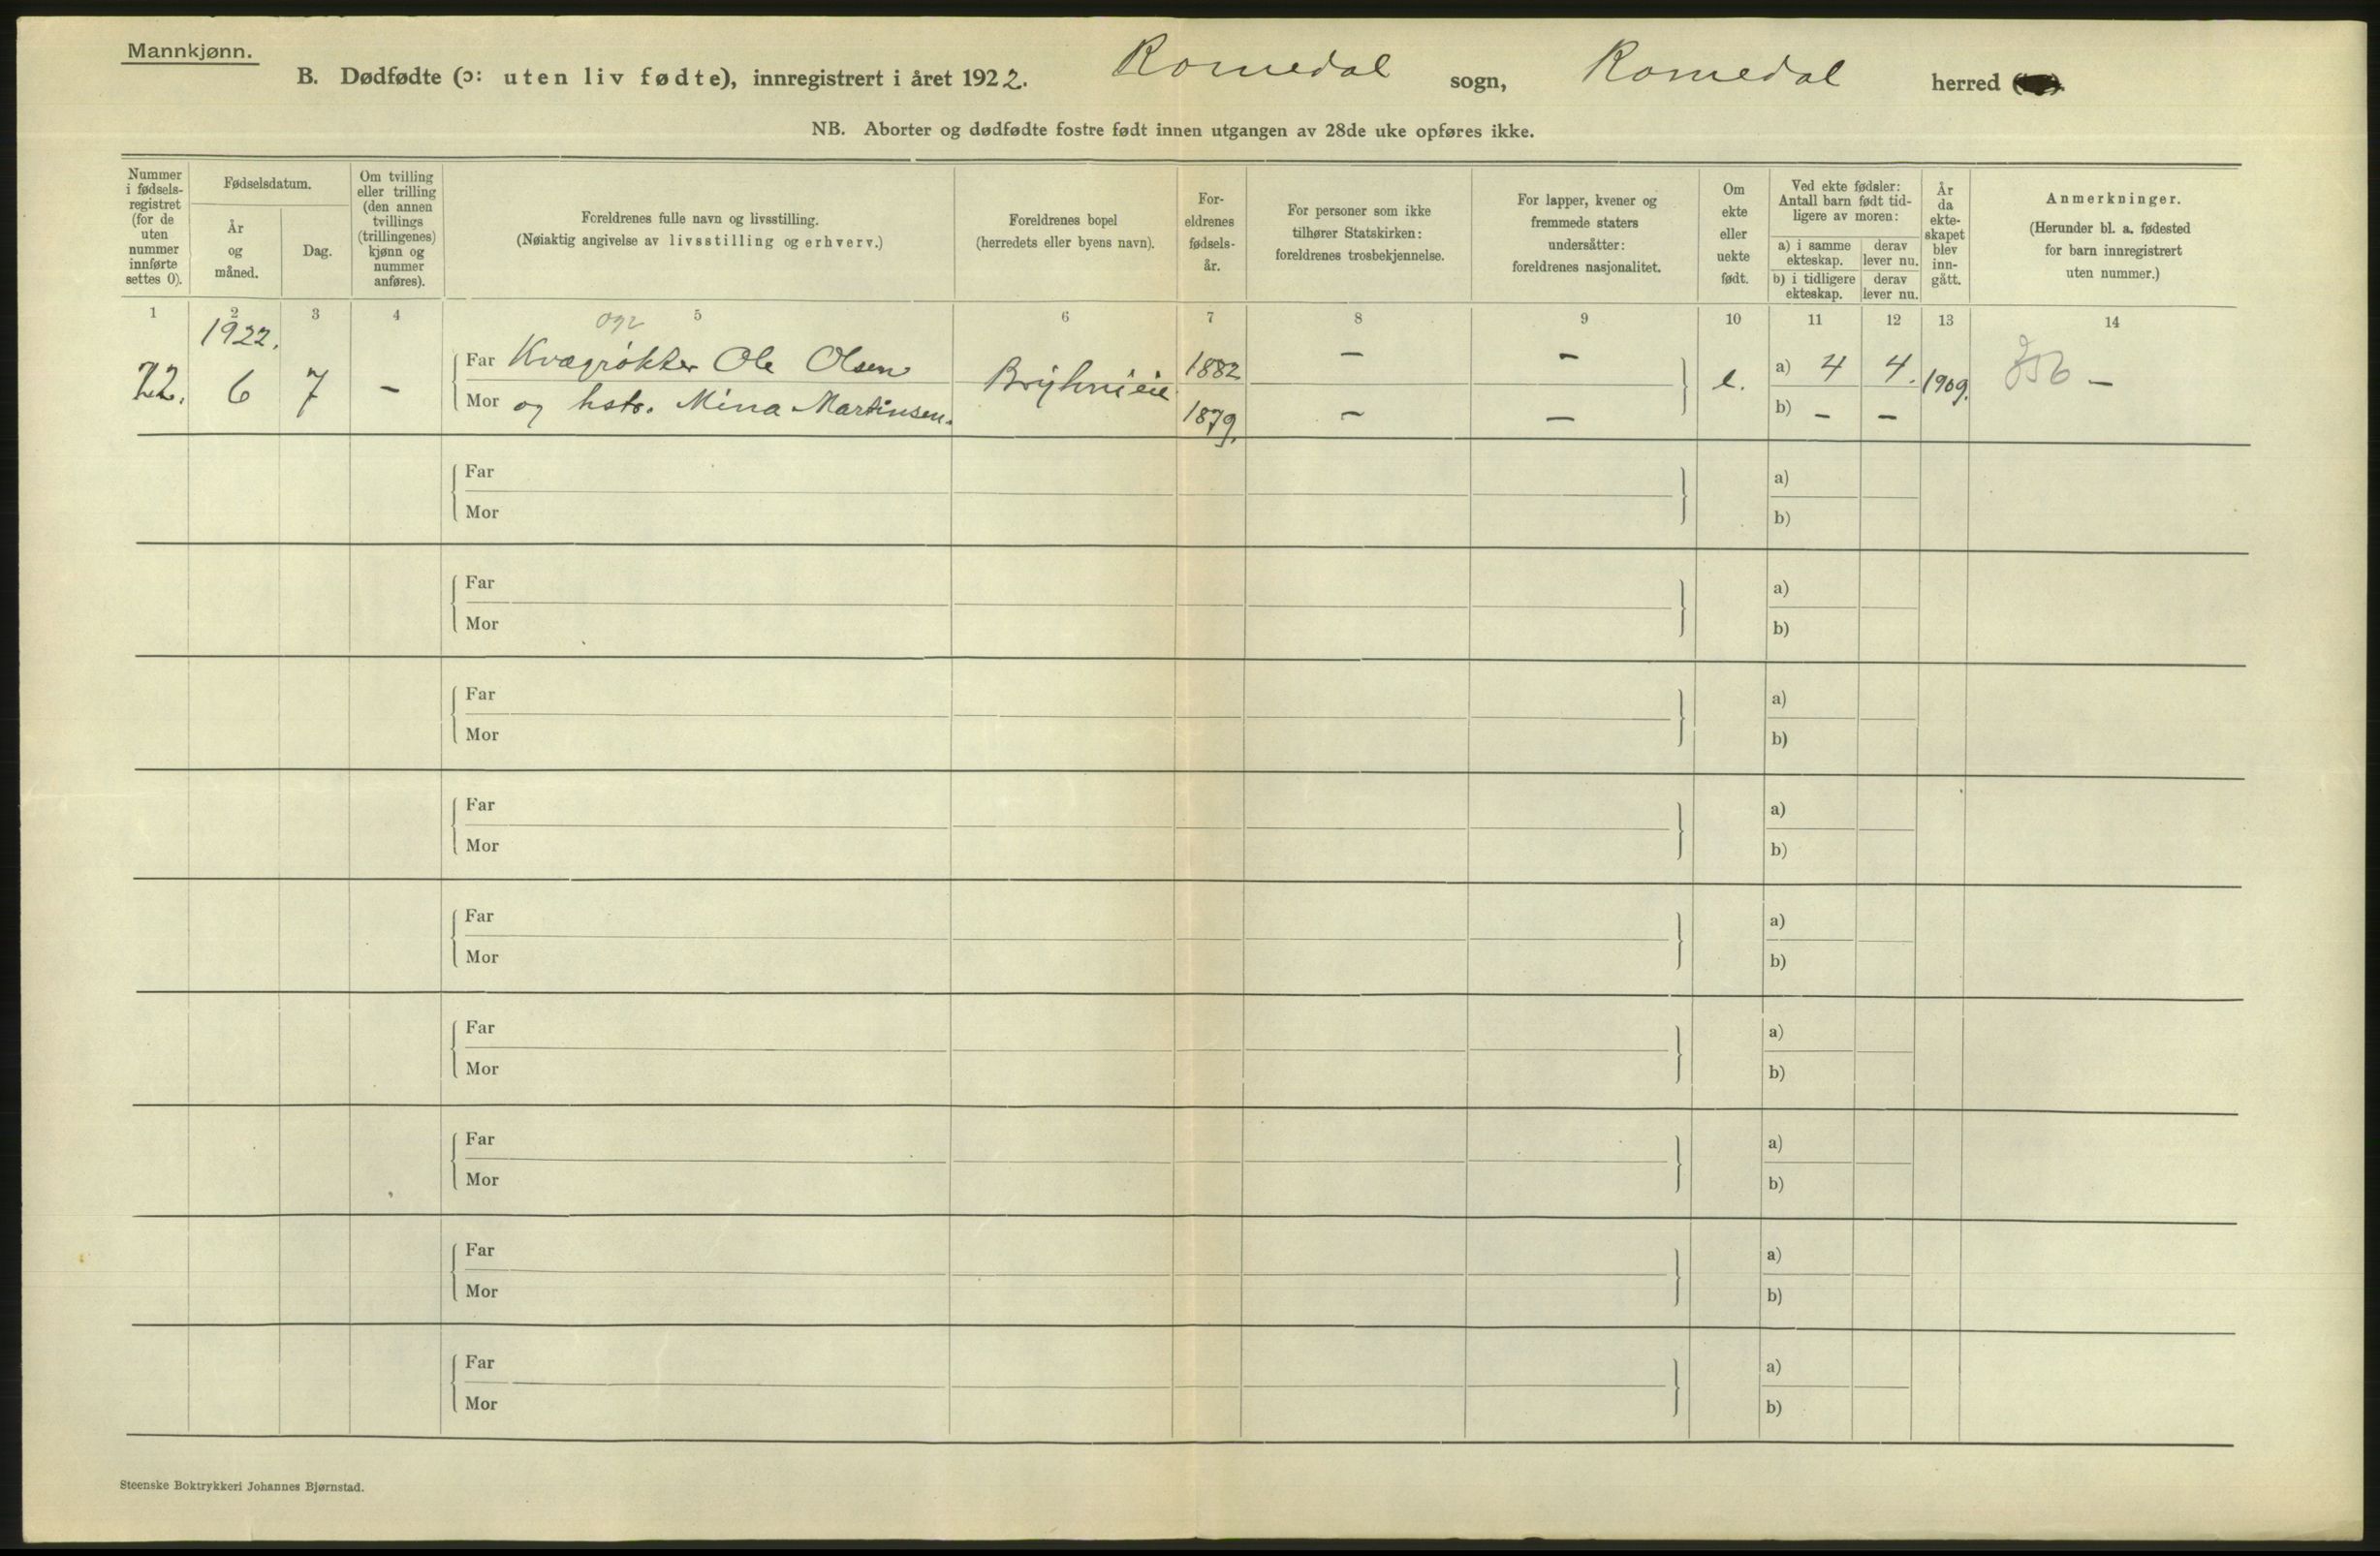 Mannkjønn.
B. Dødfødte (ɔ: uten liv fødte), innregistrert i året 1922. Romedal sogn, Romedal herred
NB. Aborter og dødfødte fostre født innen utgangen av 28de uke opføres ikke.
Nummer i fødsels-registret (for de uten nummer innførte settes 0).
Fødselsdatum.
År og måned.
Dag.
Om tvilling eller trilling (den annen tvillings (trillingenes) kjønn og nummer anføres).
Foreldrenes fulle navn og livsstilling.
(Nøiaktig angivelse av livsstilling og erhverv.)
Foreldrenes bopel
(herredets eller byens navn).
For-eldrenes fødsels-år.
For personer som ikke tilhører Statskirken: foreldrenes trosbekjennelse.
For lapper, kvener og fremmede staters undersåtter: foreldrenes nasjonalitet.
Om ekte eller uekte født.
Ved ekte fødsler: Antall barn født tid-ligere av moren:
a) i samme ekteskap. derav lever nu.
b) i tidligere ekteskap. derav lever nu.
År da ekte-skapet blev inn-gått.
Anmerkninger.
(Herunder bl. a. fødested for barn innregistrert uten nummer.)
1 2 3 4 5 6 7 8 9 10 11 12 13 14
1922.
22. 6 7 –
Far Kvægrøkter Ole Olsen 1882 – – a) 4 4.
Bryhnieie e. 1909. –
Mor og hstr. Mina Martinsen. 1879. – – b) – –
Far a)
Mor b)
Far a)
Mor b)
Far a)
Mor b)
Far a)
Mor b)
Far a)
Mor b)
Far a)
Mor b)
Far a)
Mor b)
Far a)
Mor b)
Far a)
Mor b)
Steenske Boktrykkeri Johannes Bjørnstad.